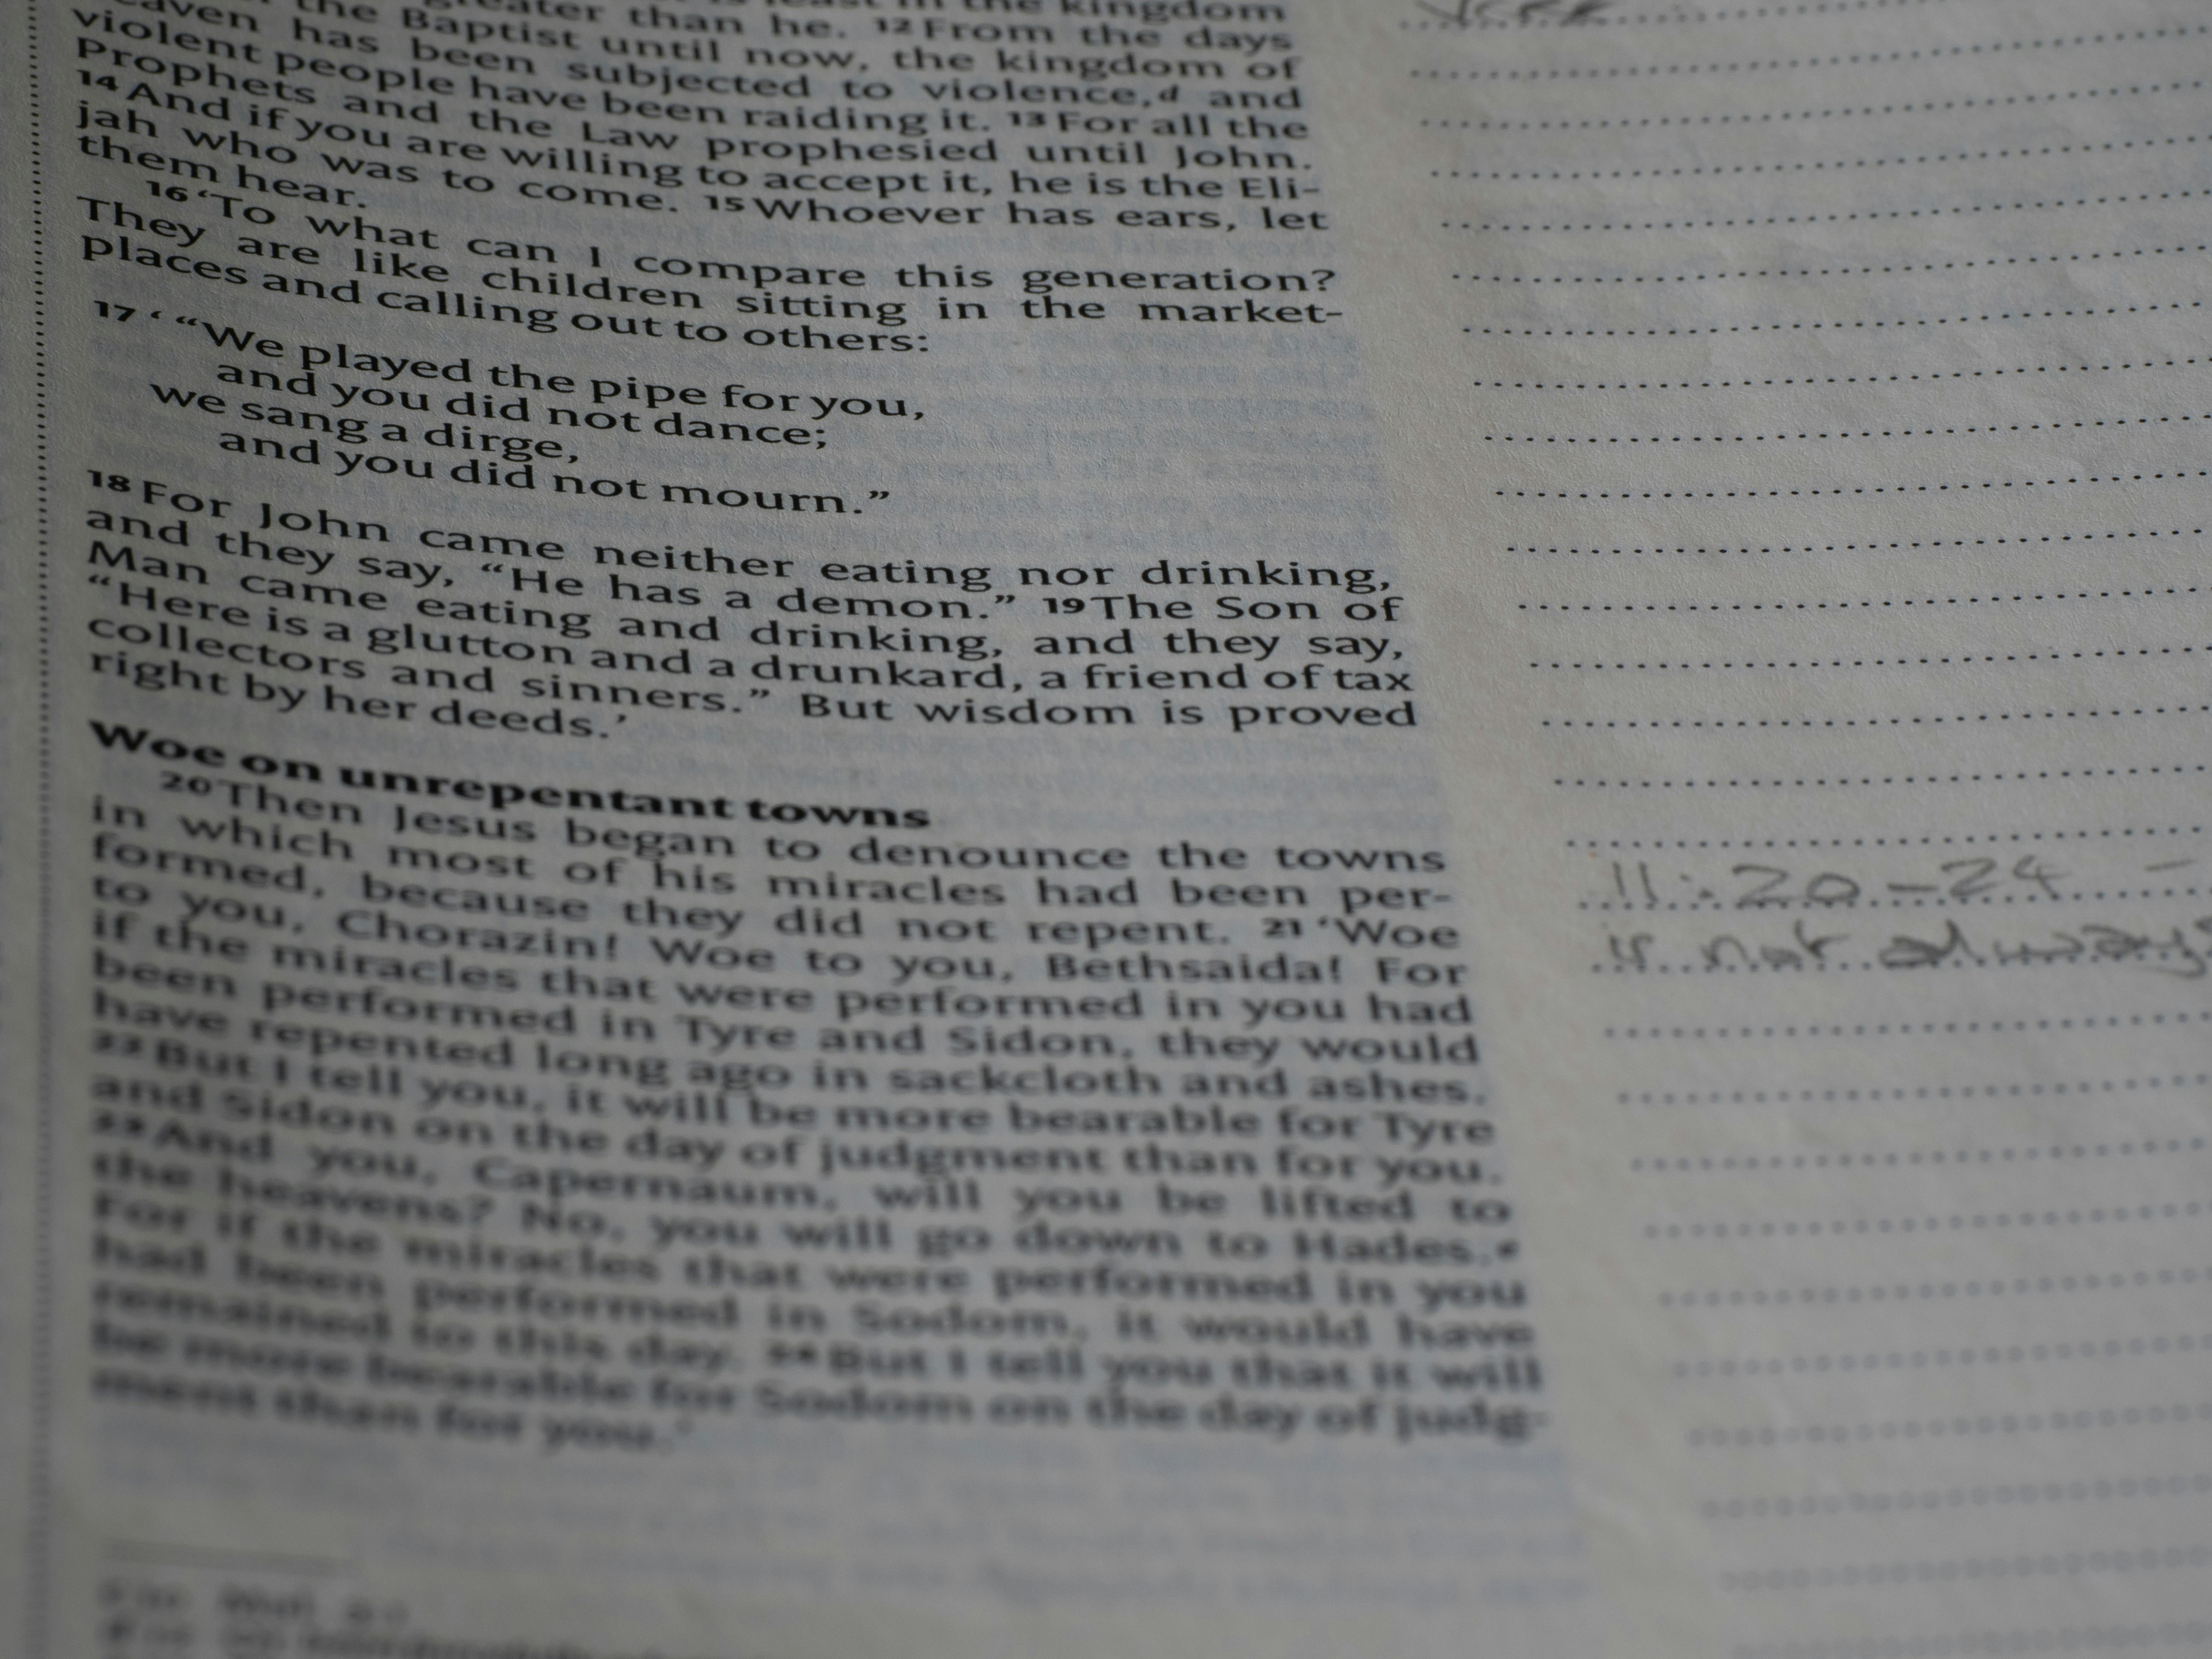 greater than he. 12 From the days
the Baptist until now, the kingdom of
has been subjected to violence,d and
violent people have been raiding it. 13 For all the
Prophets and the Law prophesied until John.
14 And if you are willing to accept it, he is the Eli-
jah who was to come. 15 Whoever has ears, let
them hear.
16 ‘To what can I compare this generation?
They are like children sitting in the market-
places and calling out to others:
17 ‘ “We played the pipe for you,
and you did not dance;
we sang a dirge,
and you did not mourn.”
18 For John came neither eating nor drinking,
and they say, “He has a demon.” 19 The Son of
Man came eating and drinking, and they say,
“Here is a glutton and a drunkard, a friend of tax
collectors and sinners.” But wisdom is proved
right by her deeds.’
Woe on unrepentant towns
20 Then Jesus began to denounce the towns
in which most of his miracles had been per-
formed, because they did not repent. 21 ‘Woe
to you, Chorazin! Woe to you, Bethsaida! For
if the miracles that were performed in you had
been performed in Tyre and Sidon, they would
have repented long ago in sackcloth and ashes.
22 But I tell you, it will be more bearable for Tyre
and Sidon on the day of judgment than for you.
23 And you, Capernaum, will you be lifted to
the heavens? No, you will go down to Hades.e
For if the miracles that were performed in you
had been performed in Sodom, it would have
remained to this day. 24 But I tell you that it will
be more bearable for Sodom on the day of judg-
ment than for you.’
11:20-24 -
is not always